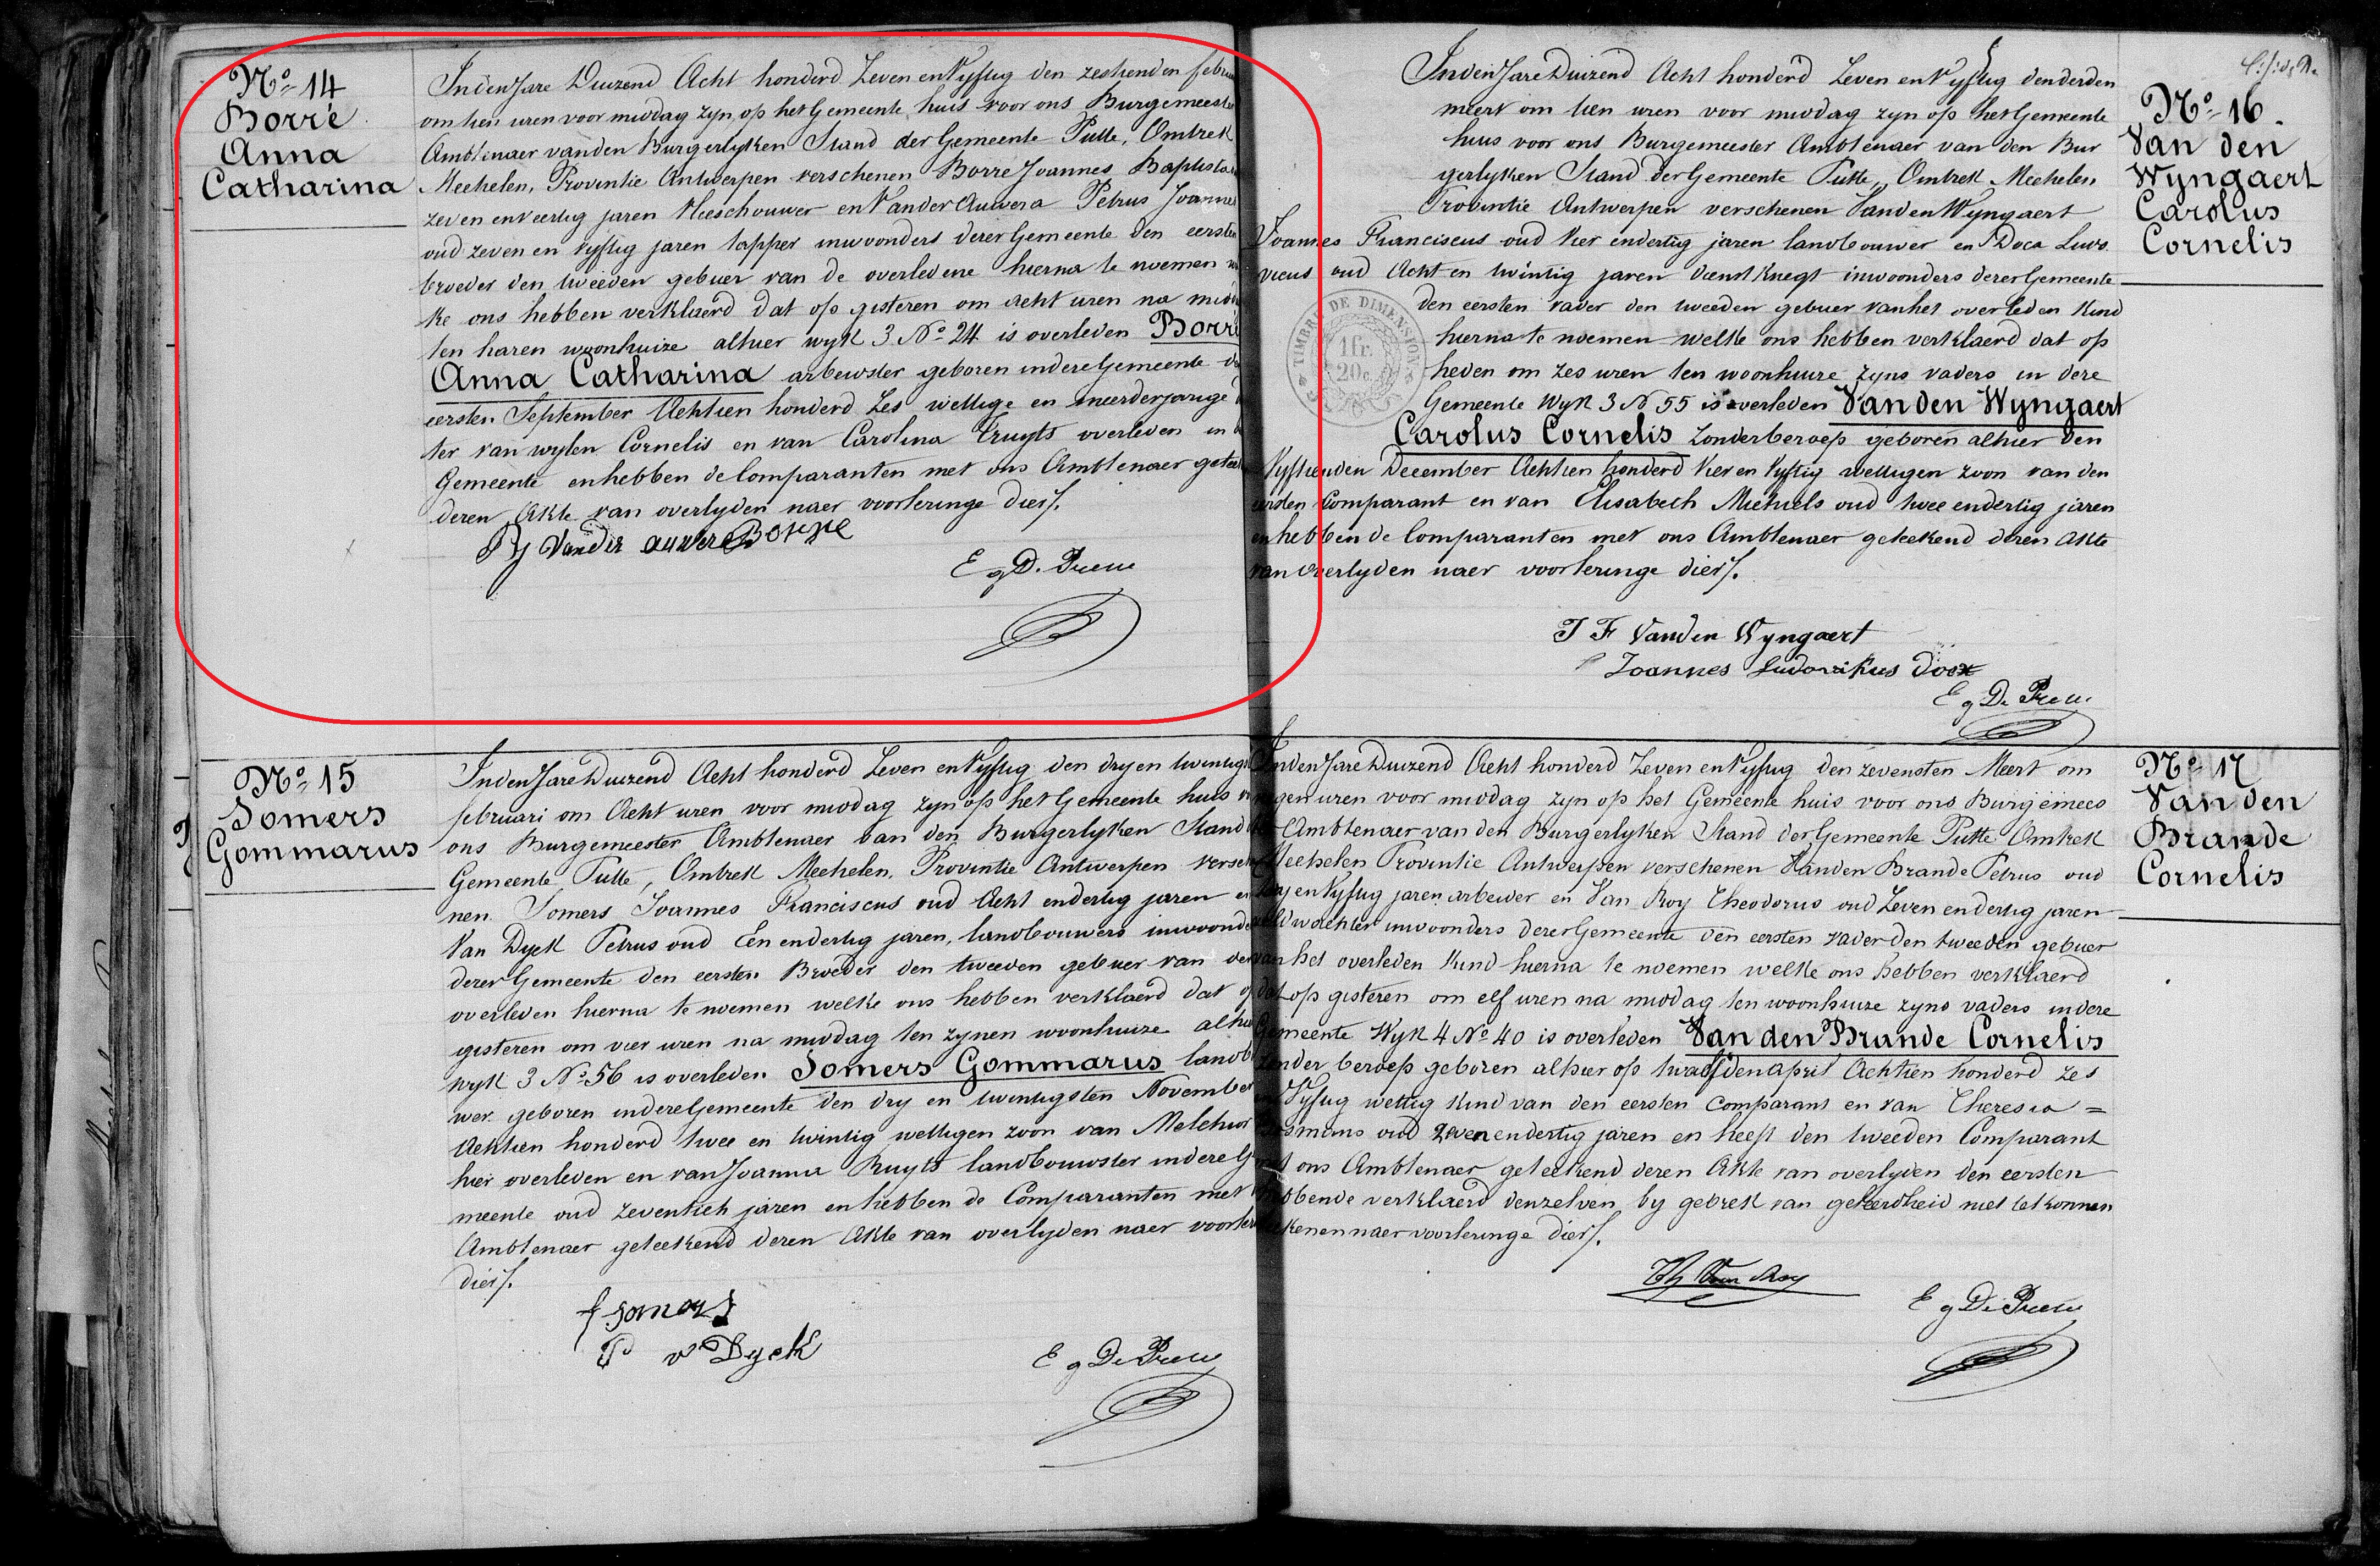 No 14
Borré
Anna
Catharina
In den Jare Duizend Acht honderd Zeven en Vyftig den zestienden
om tien uren voor middag zyn op het Gemeente huis voor ons Burgemeester
Ambtenaer van den Burgerlyken Stand der Gemeente Putte, Omtrek
Mechelen, Provintie Antwerpen verschenen Borré Joannes Baptista
zeven en veertig jaren Vleeschouwer en Van der Auwera Petrus Joannes
oud zeven en vyftig jaren tapper inwoonders derer Gemeente den eersten
broeder den tweeden gebuer van de overledene hierna te noemen
ke ons hebben verklaerd dat op gisteren om acht uren na
ten haren woonhuize alhier wyk 3 No 24 is overleden Borré
Anna Catharina arbeidster geboren in dere Gemeente
eersten September Achtien honderd Zes wettige en meerderjarige
ter van wylen Cornelis en van Carolina Truyts overleden in
Gemeente en hebben de Comparanten met ons Ambtenaer
deren Akte van overlyden naer voorlezinge diers/.
P J Van der auwera Borré
E g De Preeu
No 15
Somers
Gommarus
In den Jare Duizend Acht honderd Zeven en Vyftig den dry en
februari om Acht uren voor middag zyn op het Gemeente huis
ons Burgemeester Ambtenaer van den Burgerlyken Stand
Gemeente Putte, Omtrek Mechelen, Provintie Antwerpen
nen Somers Joannes Franciscus oud Acht en dertig jaren
Van Dyck Petrus oud Een en dertig jaren, landbouwers
derer Gemeente den eersten Broeder den tweeden gebuer van
overleden hierna te noemen welke ons hebben verklaerd dat
gisteren om vier uren na middag ten zynen woonhuize
wyk 3 No 56 is overleden Somers Gommarus
wer geboren in dere Gemeente den dry en twintigsten November
Achtien honderd twee en twintig wettigen zoon van Melchior
hier overleden en van Joanna Ruyts landbouwster in dere
meente oud zeventich jaren en hebben de Comparanten met
Ambtenaer geteekend deren Akte van overlyden naer
diers/.
f somers
P v Dyck
E g De Preeu
No 16
Van den
Wyngaert
Carolus
Cornelis
In den Jare Duizend Acht honderd Zeven en Vyftig den derden
meert om tien uren voor middag zyn op het Gemeente
huis voor ons Burgemeester Ambtenaer van den Bur
gerlyken Stand der Gemeente Putte, Omtrek Mechelen
Provintie Antwerpen verschenen Van den Wyngaert
Joannes Franciscus oud Vier en dertig jaren landbouwer en Docx Ludo
vicus oud Acht en twintig jaren dienstknegt inwoonders derer Gemeente
den eersten vader den tweeden gebuer van het overleden kind
hierna te noemen welke ons hebben verklaerd dat op
heden om zes uren ten woonhuize zyns vaders in dere
Gemeente Wyk 3 N 55 is overleden Van den Wyngaert
Carolus Cornelis Zonder beroep geboren alhier den
Vyftienden December Achtien honderd Vier en Vyftig wettigen zoon van den
eersten Comparant en van Elisabeth Michiels oud twee en dertig jaren
en hebben de Comparanten met ons Ambtenaer geteekend deren Akte
van overlyden naer voorlezinge diers/.
TIMBRE DE DIMENSION
1 fr.
20 c.
J F Van den Wyngaert
Joannes Ludovikus docx
E g De Preeu
No 17
Van den
Brande
Cornelis
In den Jare Duizend Acht honderd Zeven en Vyftig den zevensten Meert om
negen uren voor middag zyn op het Gemeente huis voor ons Burgemees
Ambtenaer van den Burgerlyken Stand der Gemeente Putte Omtrek
Mechelen Provintie Antwerpen verschenen Van den Brande Petrus oud
en Vyftig jaren arbeider en Van Roy Theodorus oud Zeven en dertig jaren
veldwachter inwoonders derer Gemeente den eersten vader den tweeden gebuer
van het overleden Kind hierna te noemen welke ons hebben verklaerd
dat op gisteren om elf uren na middag ten woonhuize zyns vaders in dere
Gemeente Wyk 4 No 40 is overleden Van den Brande Cornelis
zonder beroep geboren alhier op twaelfden april Achtien honderd zes
Vyftig wettig kind van den eersten comparant en van Theresia =
oud zeven en dertig jaren en heeft den tweeden Comparant
met ons Ambtenaer geteekend deren Akte van overlyden den eersten
hebbende verklaerd denzelven by gebrek van geleerdheid niet te konnen
teekenen naer voorlezinge diers/.
Th Van Roy
E g De Preeu